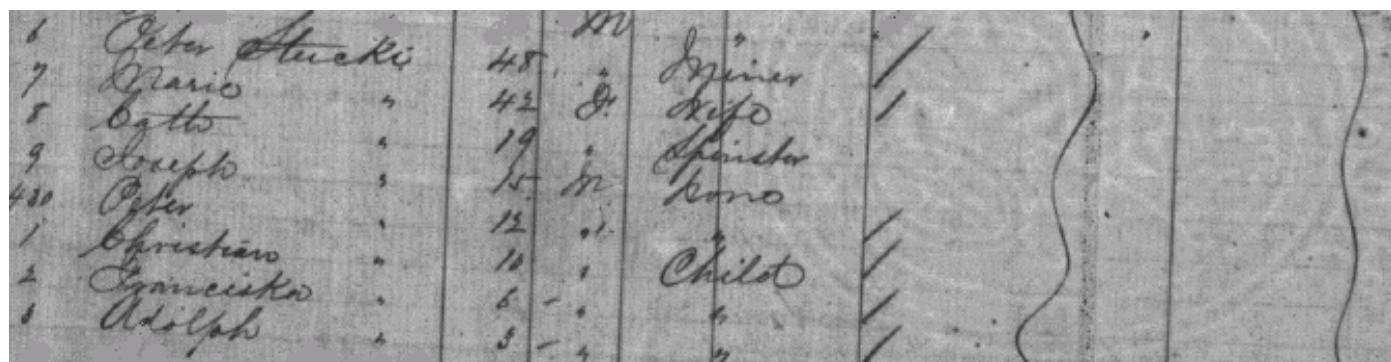 6 Peter Stucki 48 M Miner
7 Marie " 42 F. Wife
8 Cath " 19 " Spinster
9 Joseph " 15 M None
430 Peter " 12 " "
1 Christian " 10 " Child
2 Franciska " 6 - " "
3 Adolph " 3 - " "